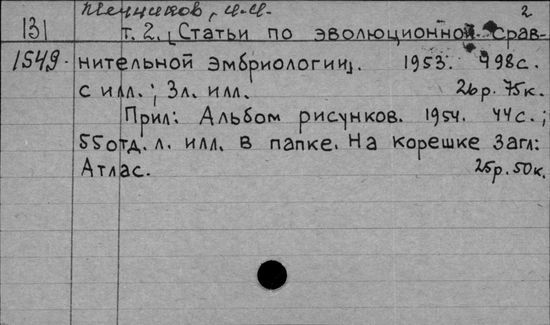 Мечников, И.И. 2
131 т. 2. [Статьи по эволюционной срав-
1549. нительной эмбриологии]. 1953. 998с.
с илл.; 3л. илл. 26р. 75к.
Прил: Альбом рисунков. 1954. 44с.;
55отд. л. илл. в папке. На корешке загл:
Атлас. 25р. 50к.